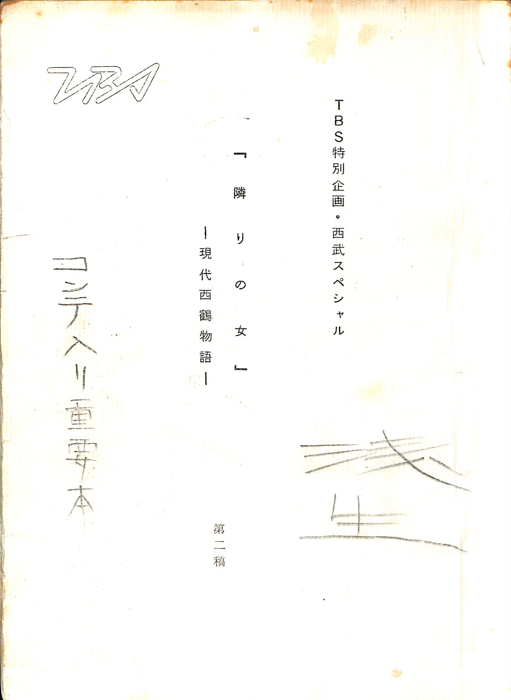 TBS特別企画・西武スペシャル
『隣りの女』
―現代西鶴物語―
第二稿
TBS
コンテ入り重要本
浅生